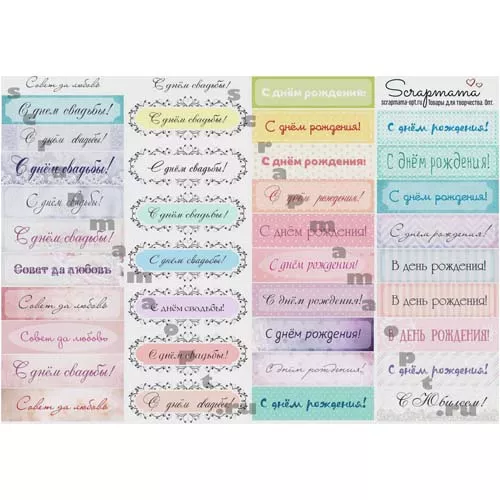 Совет да любовь
С днем свадьбы!
С днём свадьбы!
С днём свадьбы!
С днём свадьбы!
С днём свадьбы!
Совет да любовь
Совет да любовь
Совет да любовь
С днём свадьбы!
Совет да любовь
С днём свадьбы!
С днём свадьбы!
С днём свадьбы!
С днём свадьбы!
С днём свадьбы!
С днём свадьбы!
С днём свадьбы!
С днём свадьбы!
С днём рождения!
С днём рождения!
С днём рождения!
С днём рождения!
С днём рождения!
С днём рождения!
С днём рождения!
С днём рождения!
С днём рождения!
С днём рождения!
Scrapmama
scrapmama-opt.ru Товары для творчества. Опт.
С днём рождения!
С днём рождения!
С днём рождения!
С днём рождения!
В день рождения!
В день рождения!
В ДЕНЬ РОЖДЕНИЯ!
С Юбилеем!
С Юбилеем!